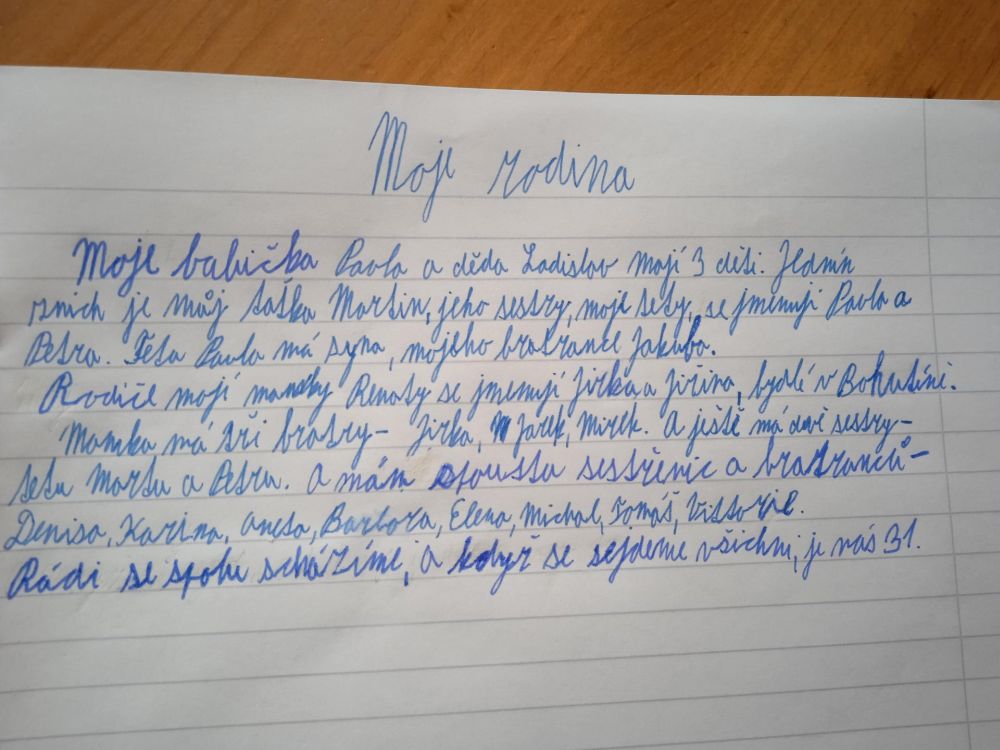 Moje rodina
Moje babička Pavla a děda Ladislav mají 3 děti. Jedním
z nich je můj taťka Martin, jeho sestry, moje tety, se jmenují Pavla a
Petra. Teta Pavla má syna, mojého bratrance Jakuba.
Rodiče mojí mamky Renaty se jmenují Jirka a Jiřina, bydlé v Bohutíni.
Mamka má tři bratry- Jirka, Jarek, Mirek. A ještě má dvě sestry-
tetu Martu a Petru. A mám spoustu sestřenic a bratranců-
Denisa, Karina, Aneta, Barbora, Elena, Michal, Tomáš,
Rádi se spolu scházíme, a když se sejdeme všichni, je nás 31.